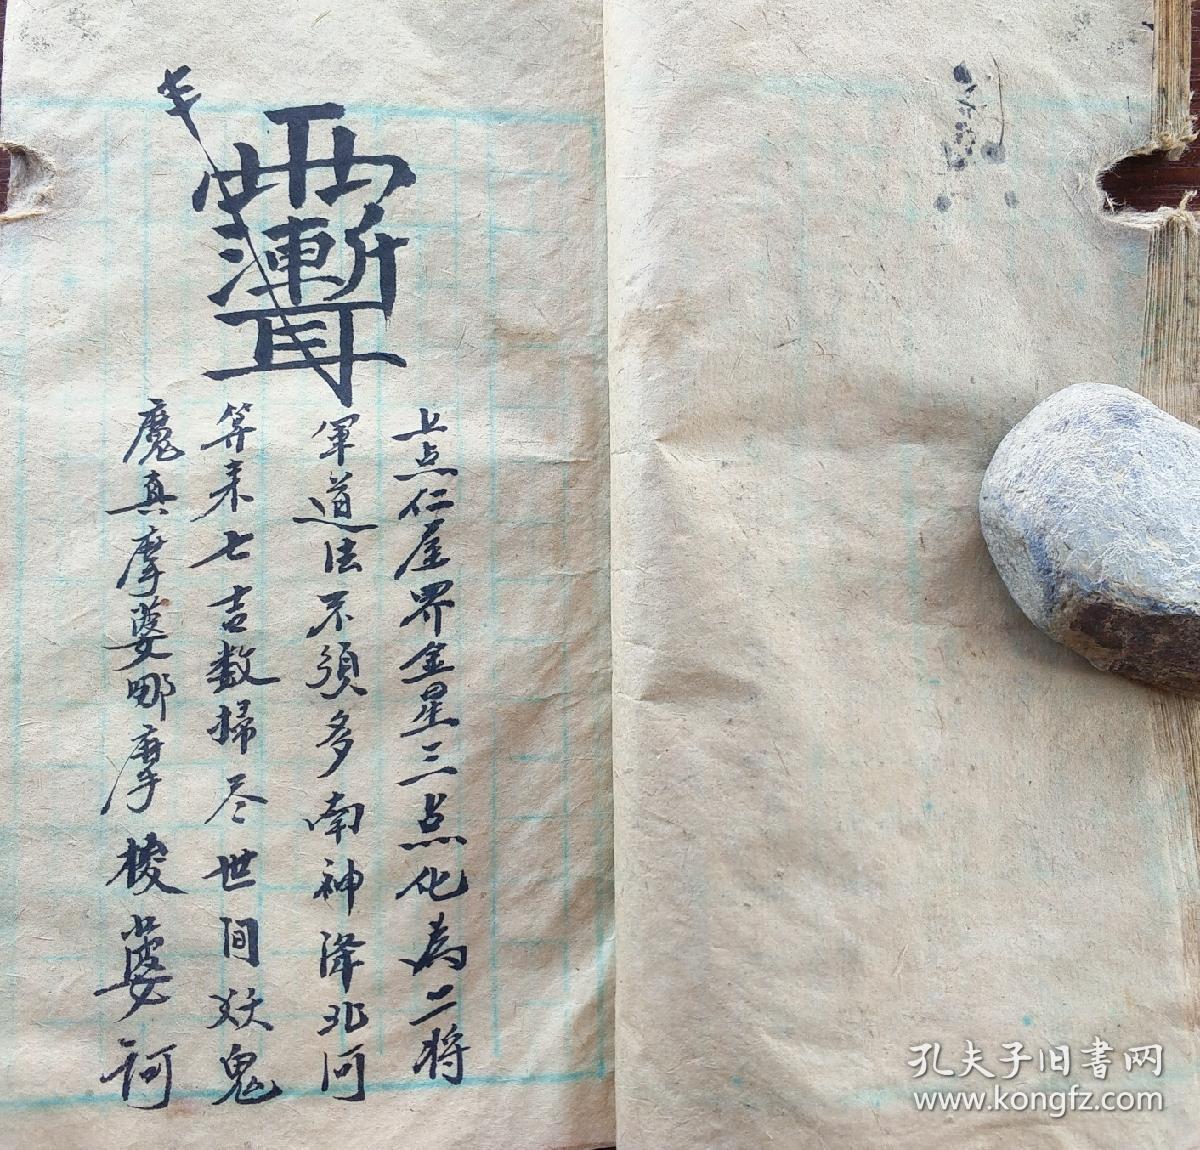 上点仁屋界金星三点化為二将
軍道法不須多南神降北河
等来七吉数掃尽世间妖鬼
魔真摩婆哪摩梭婆訶
孔夫子旧書网
www.kongfz.com